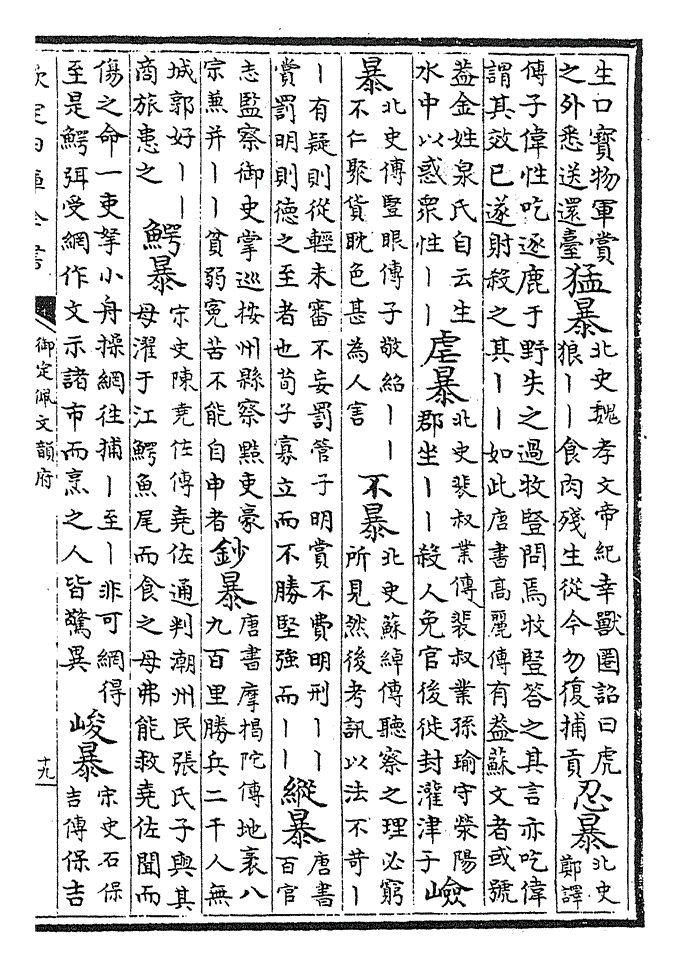 生口寶物軍賞
之外悉送還臺
猛暴
北史魏孝文帝紀幸獸圈詔曰虎
狼丨丨食肉殘生從今勿復捕貢
忍暴
北史
鄭譯
傳子偉性吃逐鹿于野失之過牧豎問焉牧豎答之其言亦吃偉
謂其效已遂射殺之其丨丨如此唐書高麗傳有益蘇文者或號
益金姓泉氏自云生
水中以惑衆性丨丨
虐暴
北史裴叔業傳裴叔業孫瑜守滎陽
郡坐丨丨殺人免官後徙封灌津子
嶮
暴
北史傳豎眼傳子敬紹丨丨
不仁聚貨耽色甚為人害
不暴
北史蘇綽傳聽察之理必窮
所見然後考訊以法不苛丨
丨有疑則從輕未審不妄罰管子明賞不費明刑丨丨
賞罰明則德之至者也荀子寡立而不勝堅強而丨丨
縱暴
唐書
百官
志監察御史掌巡按州縣察黠吏豪
宗兼并丨丨貧弱冤苦不能自申者
鈔暴
唐書摩揭陀傳地袤八
九百里勝兵二千人無
城郭好丨丨
商旅患之
鰐暴
宋史陳堯佐傳堯佐通判潮州民張氏子與其
母濯于江鰐魚尾而食之母弗能救堯佐聞而
傷之命一吏拏小舟操網往捕丨至丨非可網得
至是鰐弭受網作文示諸市而烹之人皆驚異
峻暴
宋史石保
吉傳保吉
欽定四庫全書
御定佩文韻府
十九